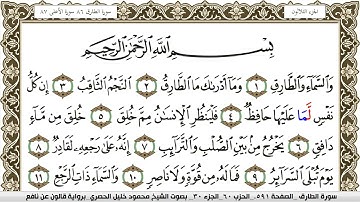 الجزء الثلاثون سورة الطارق ٨٦ سورة الأعلى ٨٧
بِسْمِ اللَّهِ الرَّحْمَٰنِ الرَّحِيمِ
وَالسَّمَآءِ وَالطَّارِقِ ١ وَمَآ أَدْرَىٰكَ مَا الطَّارِقُ ٢ النَّجْمُ الثَّاقِبُ ٣ إِن كُلُّ
نَفْسٍ لَّمَا عَلَيْهَا حَافِظٌ ٤ فَلْيَنظُرِ الْإِنسَٰنُ مِمَّ خُلِقَ ٥ خُلِقَ مِن مَّآءٍ
دَافِقٍ ٦ يَخْرُجُ مِنۢ بَيْنِ الصُّلْبِ وَالتَّرَآئِبِ ٧ إِنَّهُۥ عَلَىٰ رَجْعِهِۦ لَقَادِرٌ ٨
يَوْمَ تُبْلَى السَّرَآئِرُ ٩ فَمَا لَهُۥ مِن قُوَّةٍ وَلَا نَاصِرٍ ١٠ وَالسَّمَآءِ ذَاتِ الرَّجْعِ ١١
سورة الطارق الصفحة ٥٩١ الحزب ٦٠ الجزء ٣٠ بصوت الشيخ محمود خليل الحصري برواية قالون عن نافع